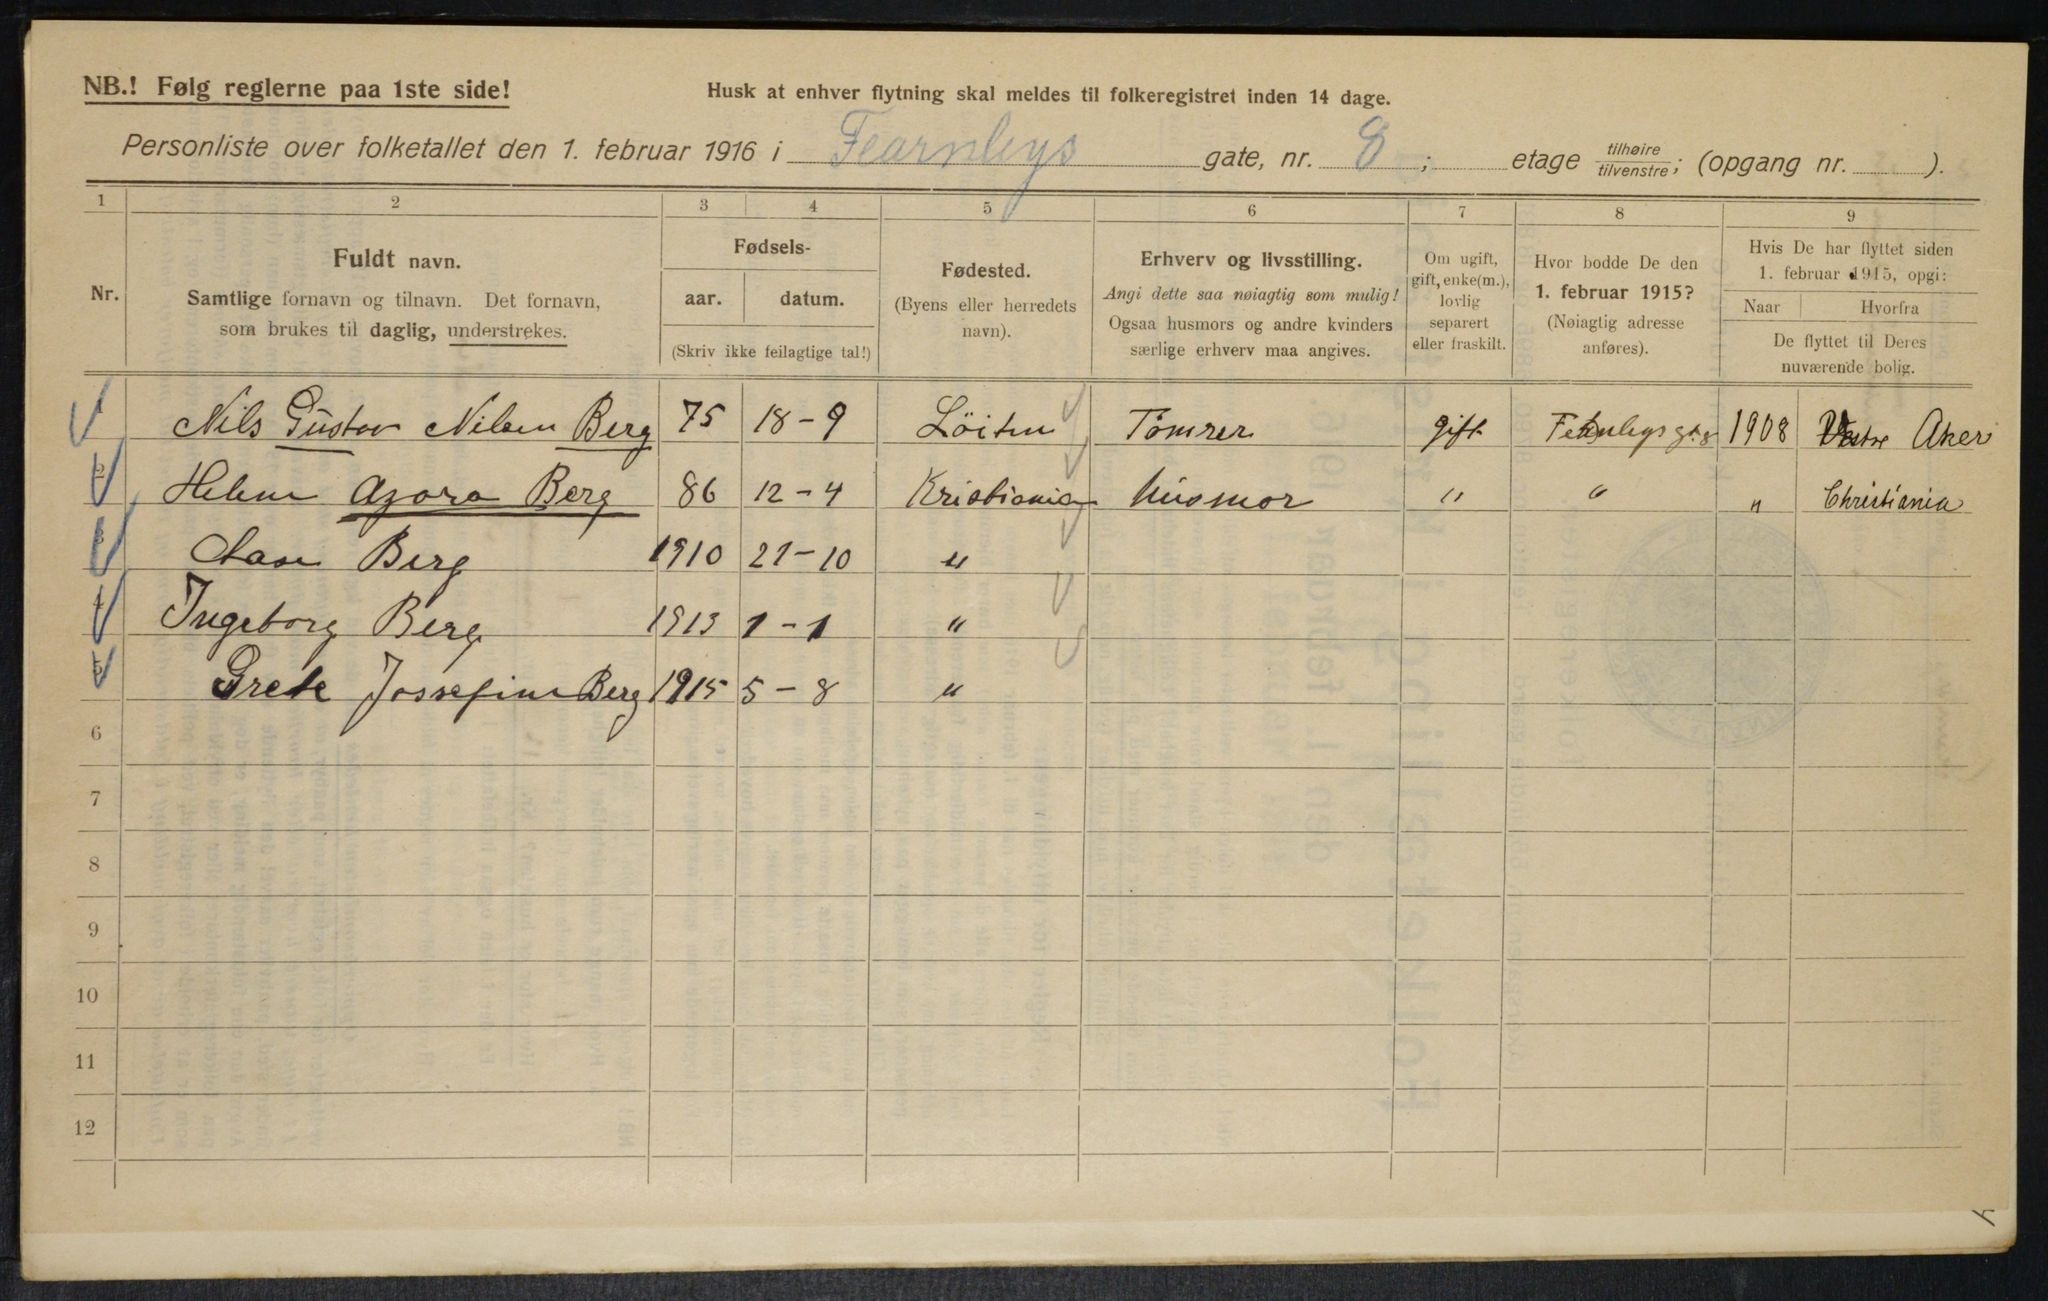 NB.! Følg reglerne paa 1ste side!
Husk at enhver flytning skal meldes til folkeregistret inden 14 dage.
Personliste over folketallet den 1. februar 1916 i Fearnleys gate, nr. 8; etage tilhøire/tilvenstre; (opgang nr. ).
1 2 3 4 5 6 7 8 9
Nr.
Fuldt navn.
Samtlige fornavn og tilnavn. Det fornavn,
som brukes til daglig, understrekes.
Fødsels-
aar. datum.
(Skriv ikke feilagtige tal!)
Fødested.
(Byens eller herredets
navn).
Erhverv og livsstilling.
Angi dette saa nøiagtig som mulig!
Ogsaa husmors og andre kvinders
særlige erhverv maa angives.
Om ugift,
gift, enke(m.),
lovlig
separert
eller fraskilt.
Hvor bodde De den
1. februar 1915?
(Nøiagtig adresse
anføres).
Hvis De har flyttet siden
1. februar 1915, opgi:
Naar Hvorfra
De flyttet til Deres
nuværende bolig.
1 Nils Gustav Nilsen Berg 75 18-9 Löiten Tömrer gift Fearnleys gt 8 1908 Vestre Aker
2 Helene Agora Berg 86 12-4 Kristiania Husmor " " " Christiania
3 Aase Berg 1910 21-10 "
4 Ingeborg Berg 1913 1-1 "
5 Grete Jossefine Berg 1915 5-8 "
6
7
8
9
10
11
12